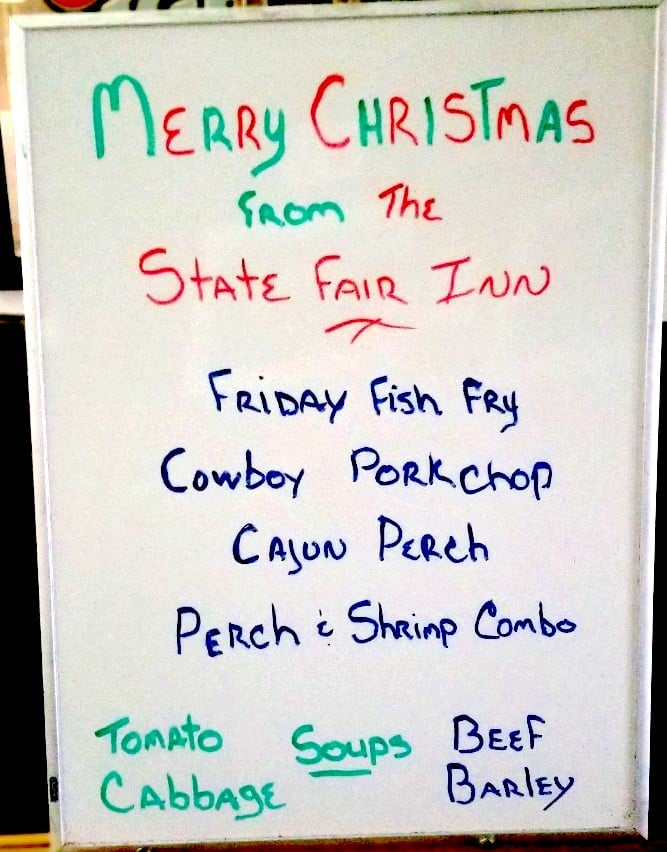 MERRY CHRISTMAS
FROM THE
STATE FAIR INN
FRIDAY Fish FRY
Cowboy PORKchop
CAJUN PERCh
PERCh & Shrimp Combo
Tomato Soups BEEF
CabbagE BARlEY